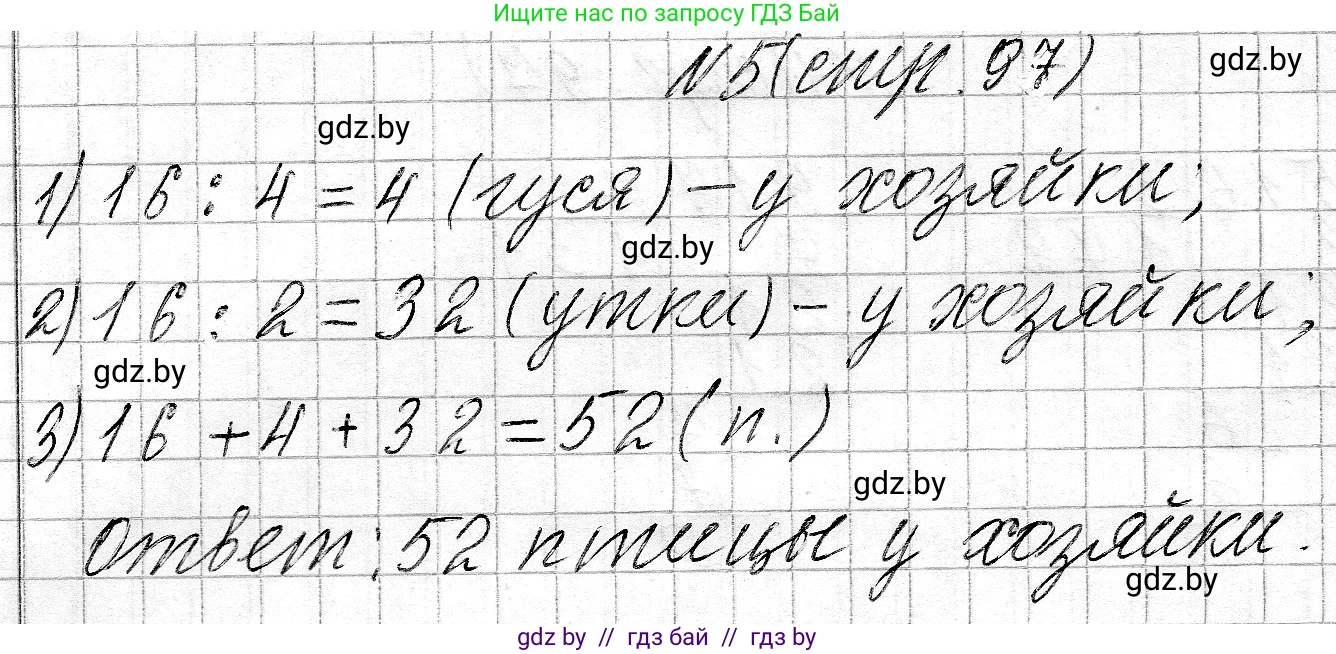 Ищите нас по запросу ГДЗ Бай
N5(стр. 97)
gdz.by
gdz.by
1) 16 : 4 = 4 (гуся) – у хозяйки;
gdz.by
2) 16 : 2 = 32 (утки) – у хозяйки;
gdz.by
3) 16 + 4 + 32 = 52 (п.)
gdz.by
Ответ: 52 птицы у хозяйки.
gdz.by
gdz by // гдз бай // гдз by